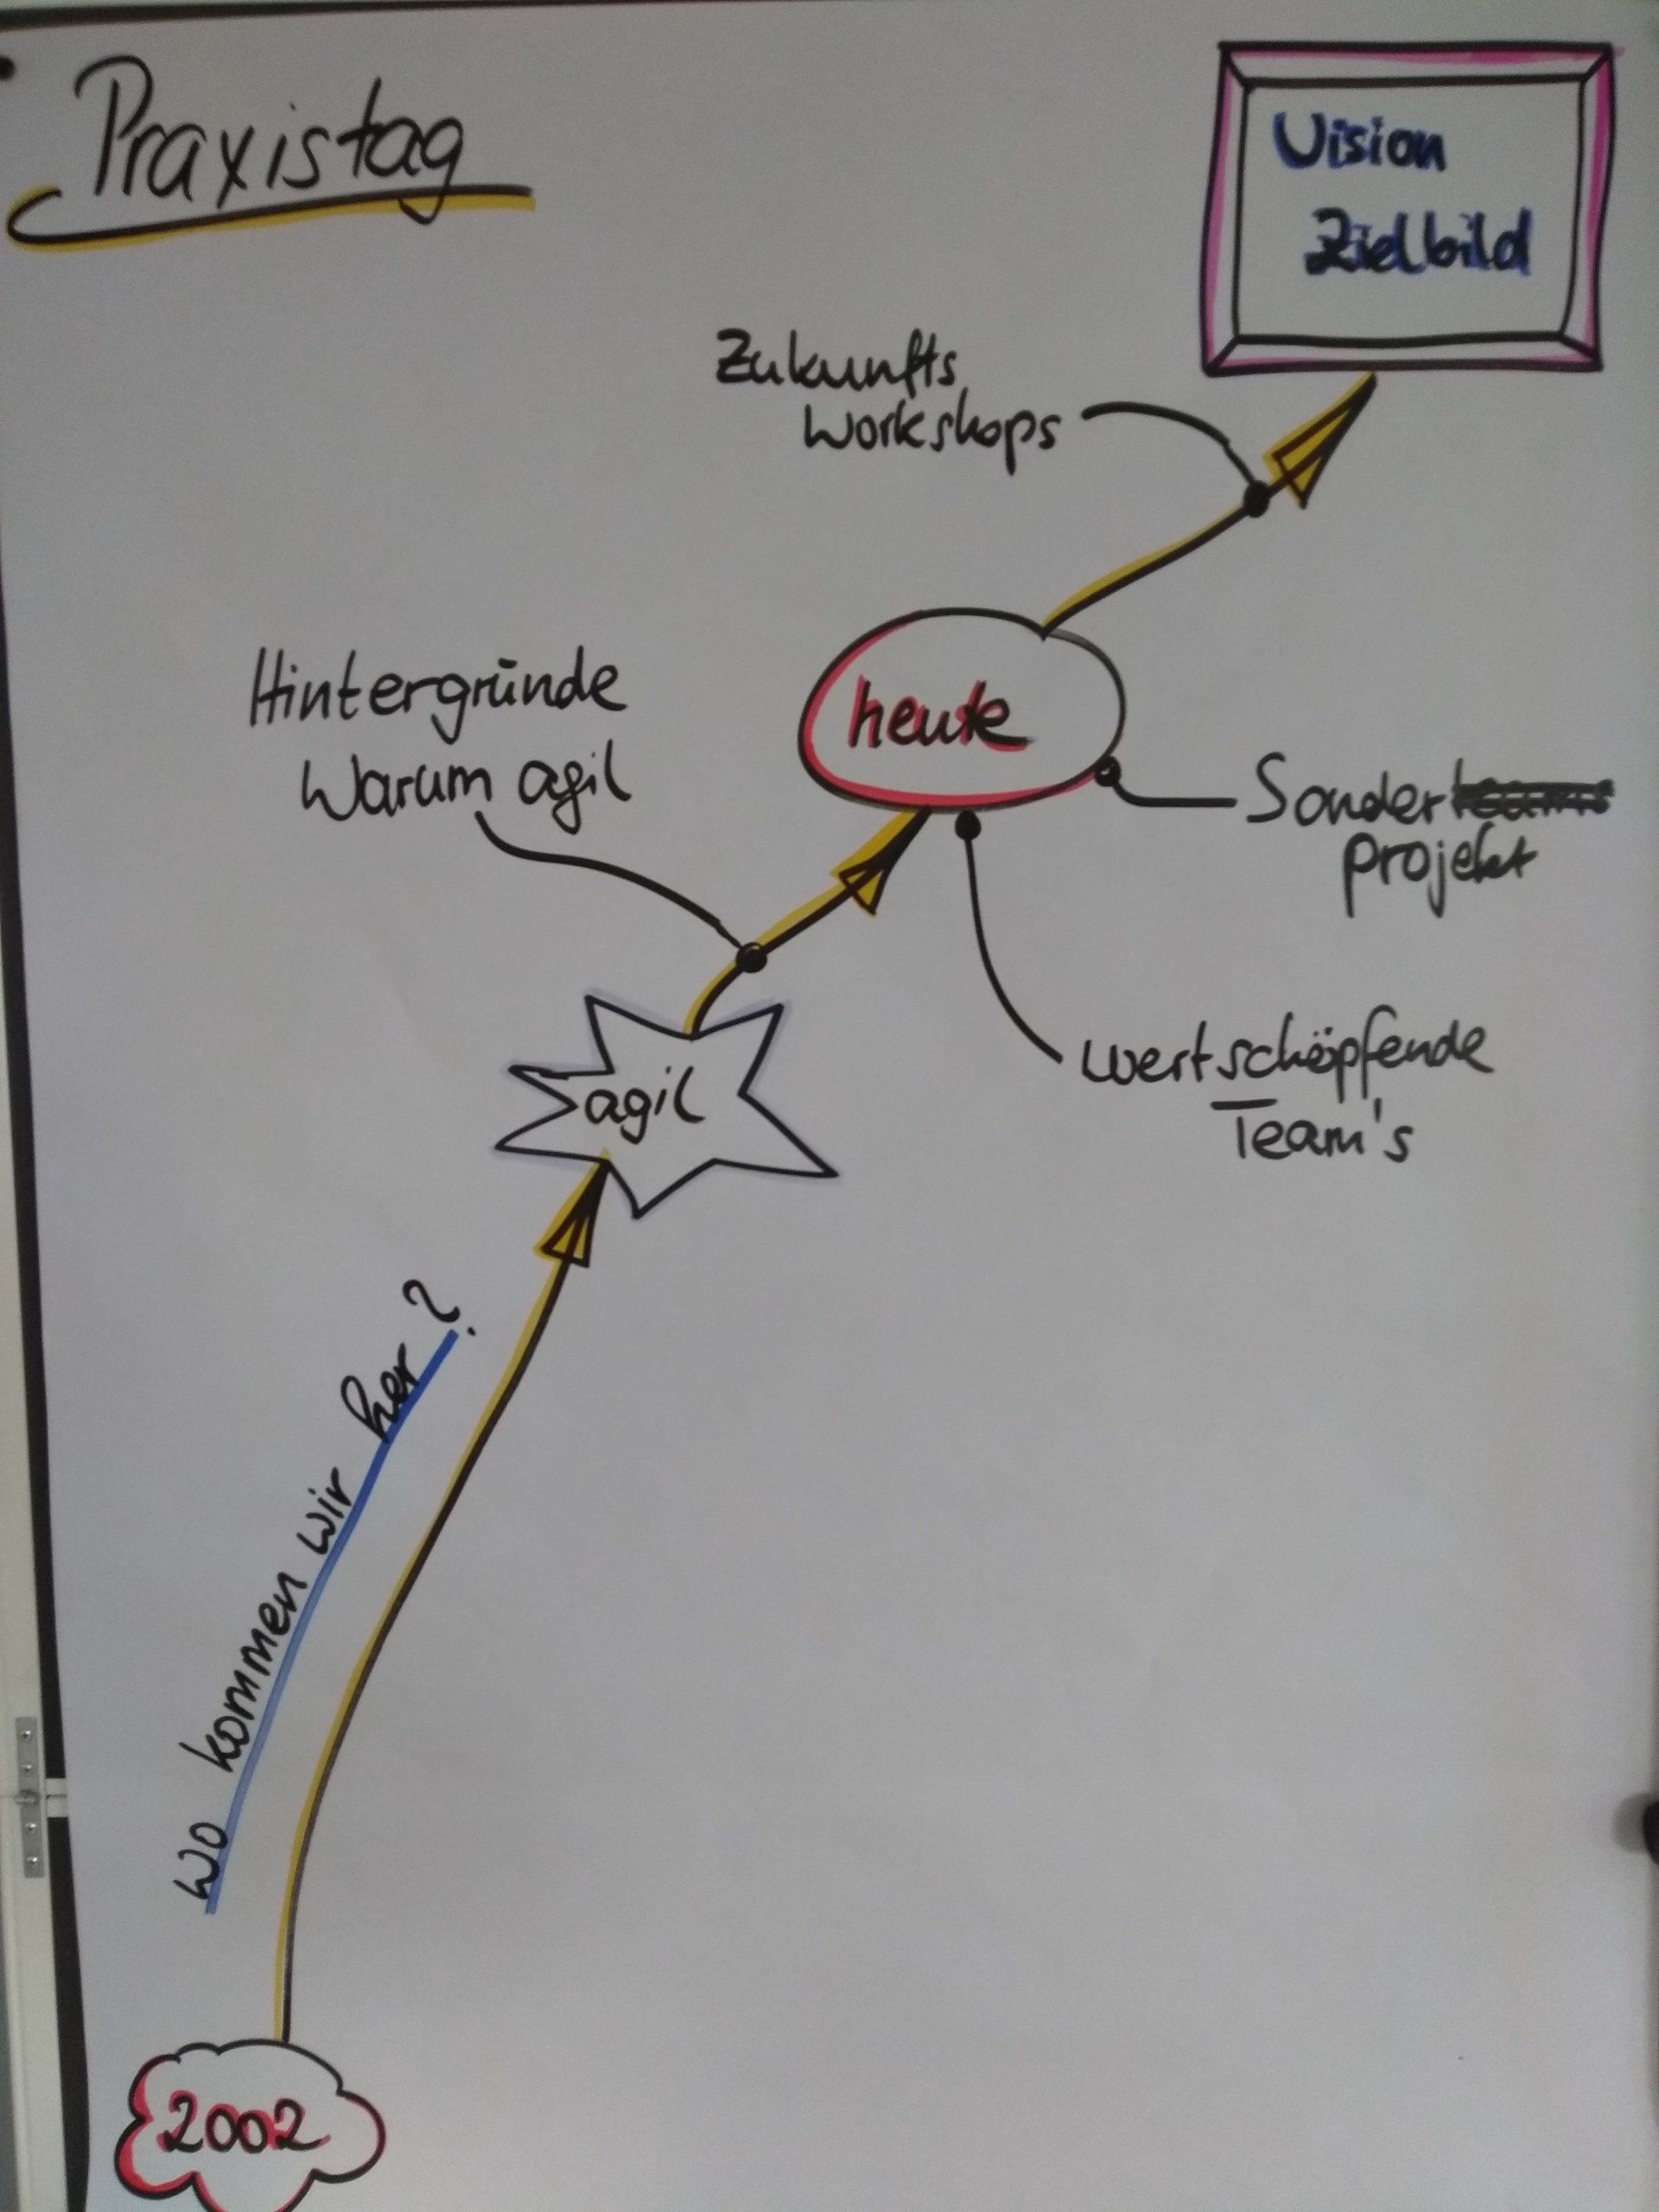 Praxistag
Vision
Zielbild
Zukunfts
Workshops
Hintergründe
Warum agil
heute
Sonderteams
projekt
agil
wertschöpfende
Team's
wo kommen wir her?
2002